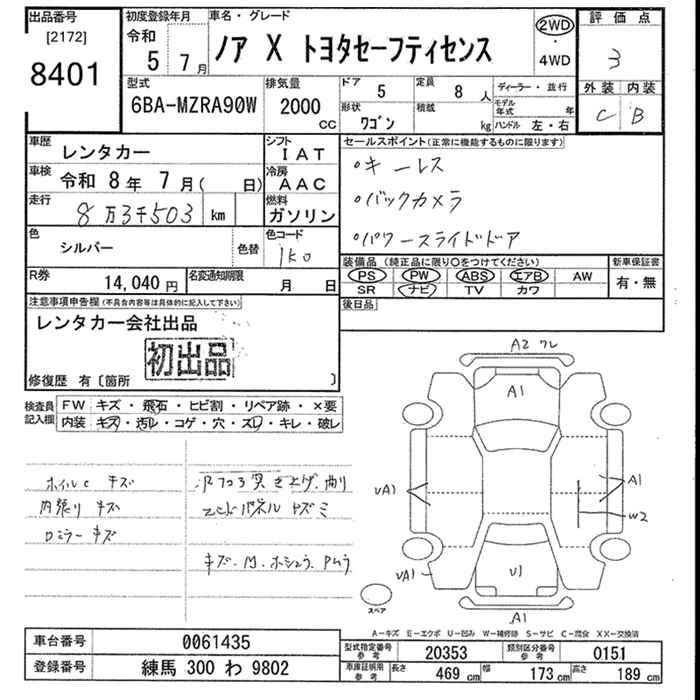 出品番号
[2172]
8401
初度登録年月
令和
5 7月
車名・グレード
ノア X トヨタセーフティセンス
2WD
・
4WD
評価点
3
外装 内装
C B
型式
6BA-MZRA90W
排気量
2000
CC
ドア
5
定員
8 人
形状
ワゴン
積載
kg
ディーラー・並行
モデル年式 年
ハンドル 左・右
車歴
レンタカー
シフト
IAT
車検
令和 8年 7月( 日)
冷房
AAC
走行
8万3千503 km
燃料
ガソリン
色
シルバー
色替
色コード
1K0
R券
14,040 円
名変通知期限
月 日
セールスポイント(正常に機能するものに限ります)
・キーレス
・バックカメラ
・パワースライドドア
装備品(純正品に限り〇をつけてください)
PS PW ABS エアB AW
SR ナビ TV カワ
新車保証書
有・無
後日品
注意事項申告欄(不具合内容等は具体的に記入して下さい)
レンタカー会社出品
初出品
修復歴 有〔箇所 〕
検査員記入欄
FW キズ・飛石・ヒビ割・リペア跡・×要
内装 キズ・汚れ・コゲ・穴・スレ・キレ・破レ
ホイルC キズ
内張り キズ
ロミラー キズ
突き上げ、曲り
パネル キズ
キズ、凹、ホシュウ、Pムラ
A2 ワレ
A1
UA1
A1
W2
UA1
U1
A1
スペア
A-キズ E-エクボ U-凹み W-補修跡 S-サビ C-腐食 XX-交換済
車台番号
0061435
登録番号
練馬 300 わ 9802
型式指定番号
参考
20353
類別区分番号
参考
0151
車庫証明用
参考
長さ
469 cm
幅
173 cm
高さ
189 cm